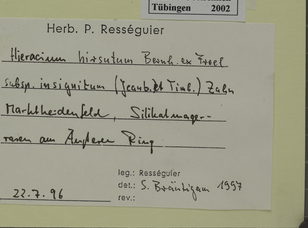 Tübingen 2002
Herb. P. Rességuier
Hieracium hirsutum Bernh. ex Froel
subsp. insignitum (Jeanb. et Timb.) Zahn
Marktheidenfeld, Silikatmager-
rasen am Äußeren Ring
leg.: Rességuier
det.: S. Bräutigam 1997
rev.:
22.7.96